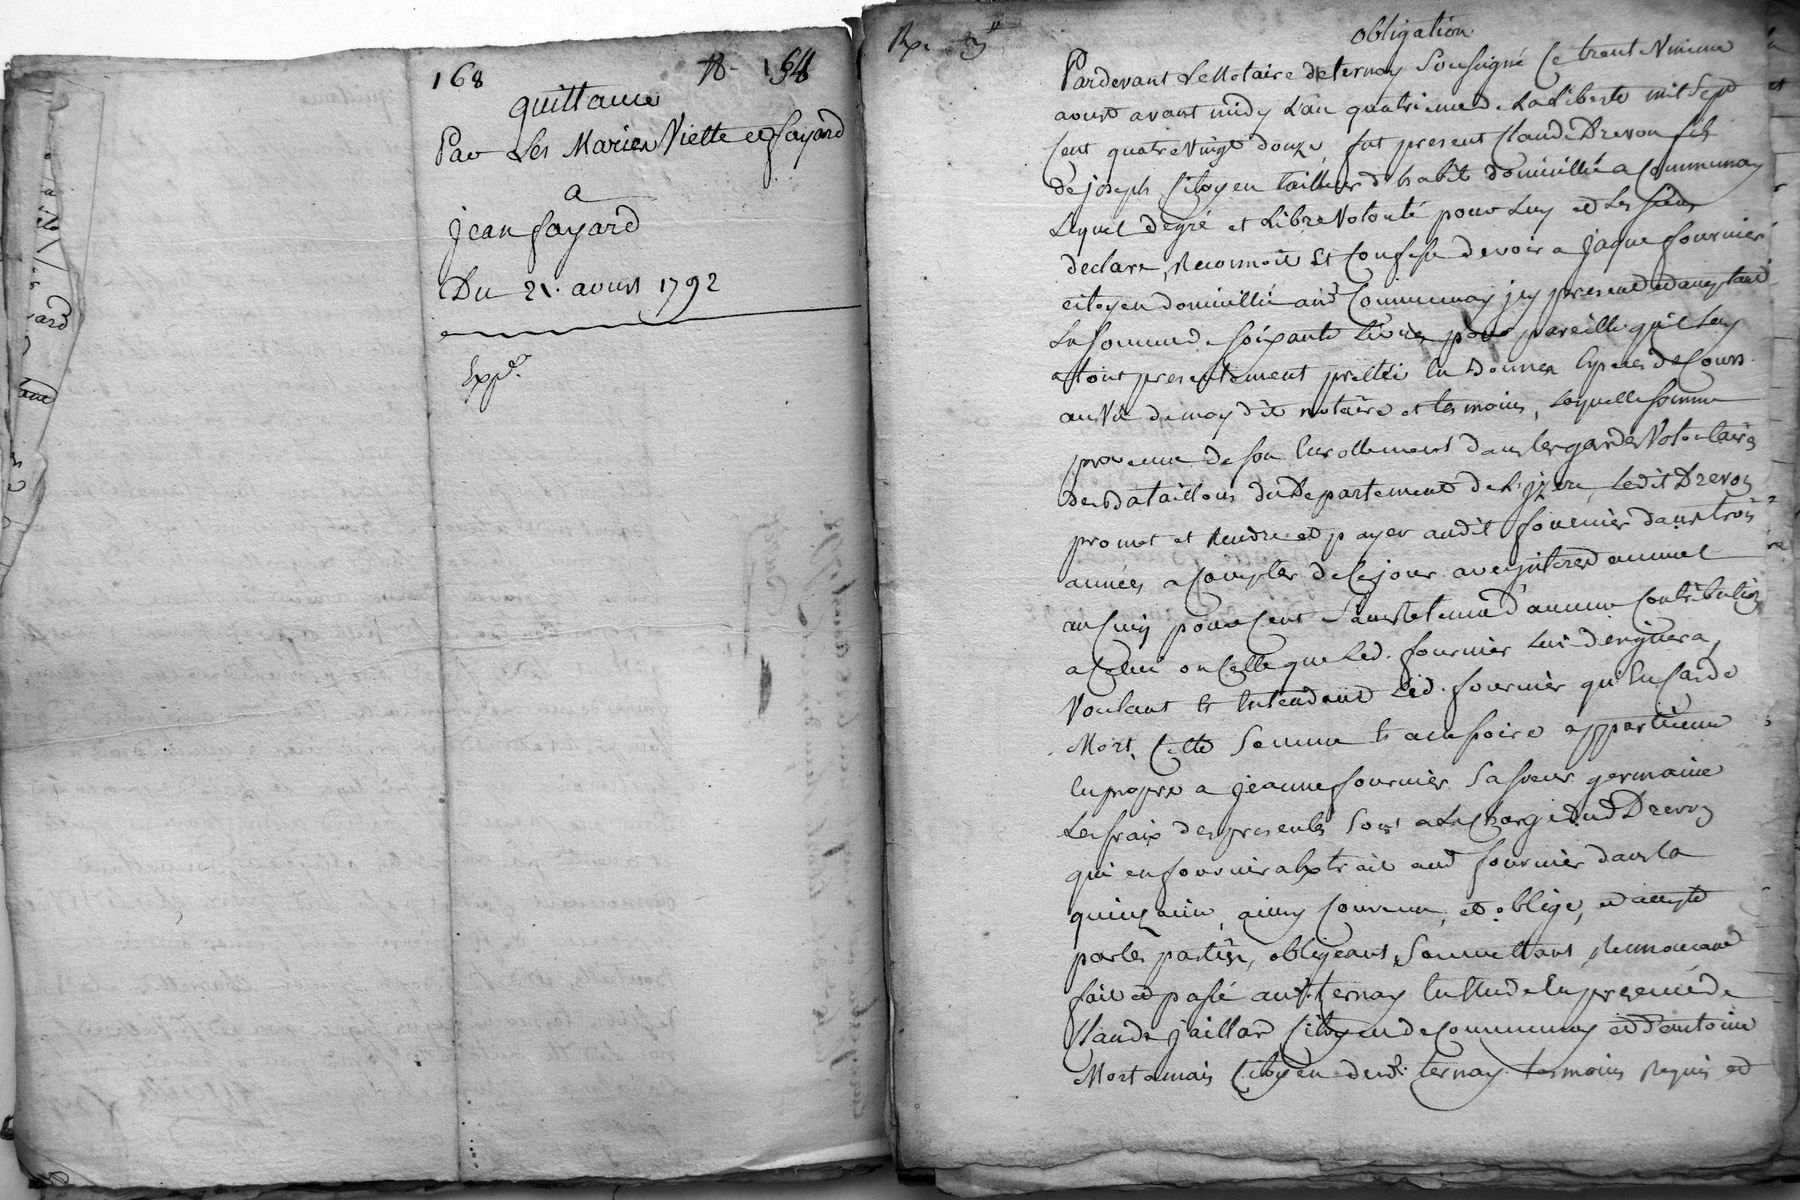 168
quittance
Par Les Mariés Viette et fayard
a
Jean fayard
Du 21. aoust 1792
Exp.
Rp. 3
obligation
Pardevant Le Notaire de ternay Soussigné Ce trente
aoust avant midy L'an quatrieme de La Liberté mil Sept
Cent quatre Vingt douze fut present Claude Drevon fils
de joseph Citoyen tailleur d'habit domicillié a Communay
Lequel degré et Libre Volonté pour Luy et Les Siens
declare, Reconnoit et Confesse devoir a jaque fournier
citoyen domicillié aud Communay jcy present et acceptant
La Somme de Soixante Livres pour pareille qu'il Luy
a tout presentement prettée En Bonnes Especes de Cours
au Vu de moy dit notaire et temoins, Laquelle Somme
provenue de Son Enrollement dans les gardes Volontaires
des Bataillons du Departement de L'jzere, Ledit Drevon
promet et Rendre et payer audit fournier dans trois
années a Compter de Ce jour avec jnterest annuel
au Cinq pour Cent Sans Retenue d'aucune Contribution
a Celui ou Celle que Led. fournier Lui designera,
Voulant et Entendant Led. fournier qu'En Cas de
Mort, Cette Somme Et accessoire appartienne
En propre a jeanne fournier Sa Soeur germaine
Les fraix des presentes Sont a La Charge dud Drevon
qui en fournira Extrait aud fournier dans la
quinzaine, ainsy Convenu, et obligé, et accepté
par les parties, obligeant, Soumettant, Renonceant
fait et passé aud. ternay En Etude En presence de
Claude jaillard Citoyen de Communay et d'antoine
Mortamais Citoyen dud. ternay temoins Requis et